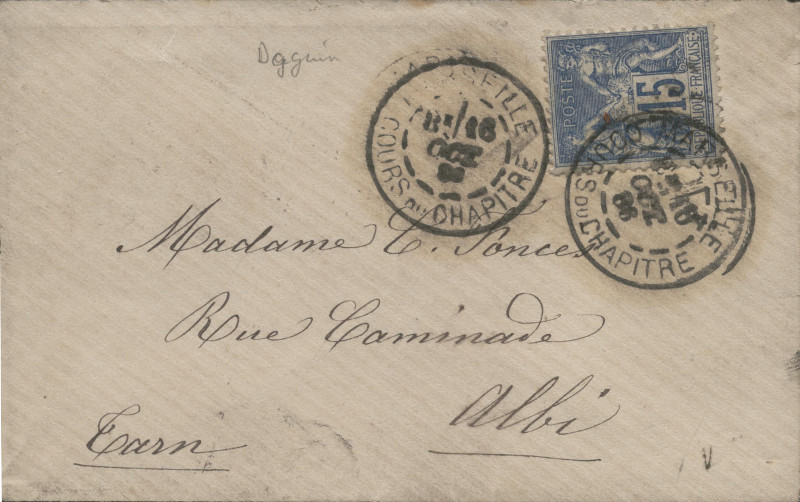 Daguin
MARSEILLE
COURS DU CHAPITRE
16
OCT
POSTE
15
RÉPUBLIQUE FRANÇAISE
MARSEILLE
COURS DU CHAPITRE
16
OCT
86
Madame C.
Rue Caminade
Albi
Tarn